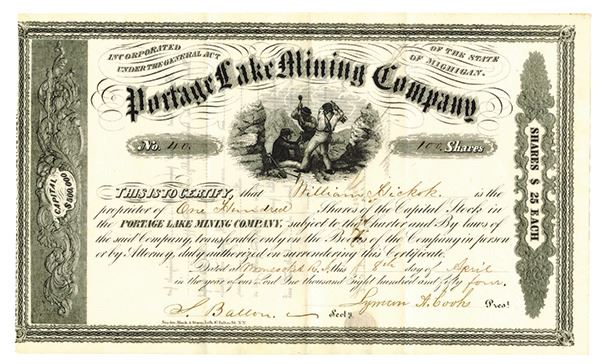 INCORPORATED
UNDER THE GENERAL ACT
OF THE STATE
OF MICHIGAN.
Portage Lake Mining Company
No. 40.
100 Shares
CAPITAL
$500,000
SHARES $ 25 EACH
THIS IS TO CERTIFY, that William Hickok is the
proprietor of One Hundred Shares of the Capital Stock in
the PORTAGE LAKE MINING COMPANY, subject to the Charter and By laws of
the said Company, transferable only on the Books of the Company in person
or by Attorney, duly authorized on surrendering this Certificate.
Dated at Woonsocket R.I. this 8th day of April
in the year of our Lord One thousand Eight hundred and fifty four.
S. Ballou. Secty. Lyman A. Cooke Prest